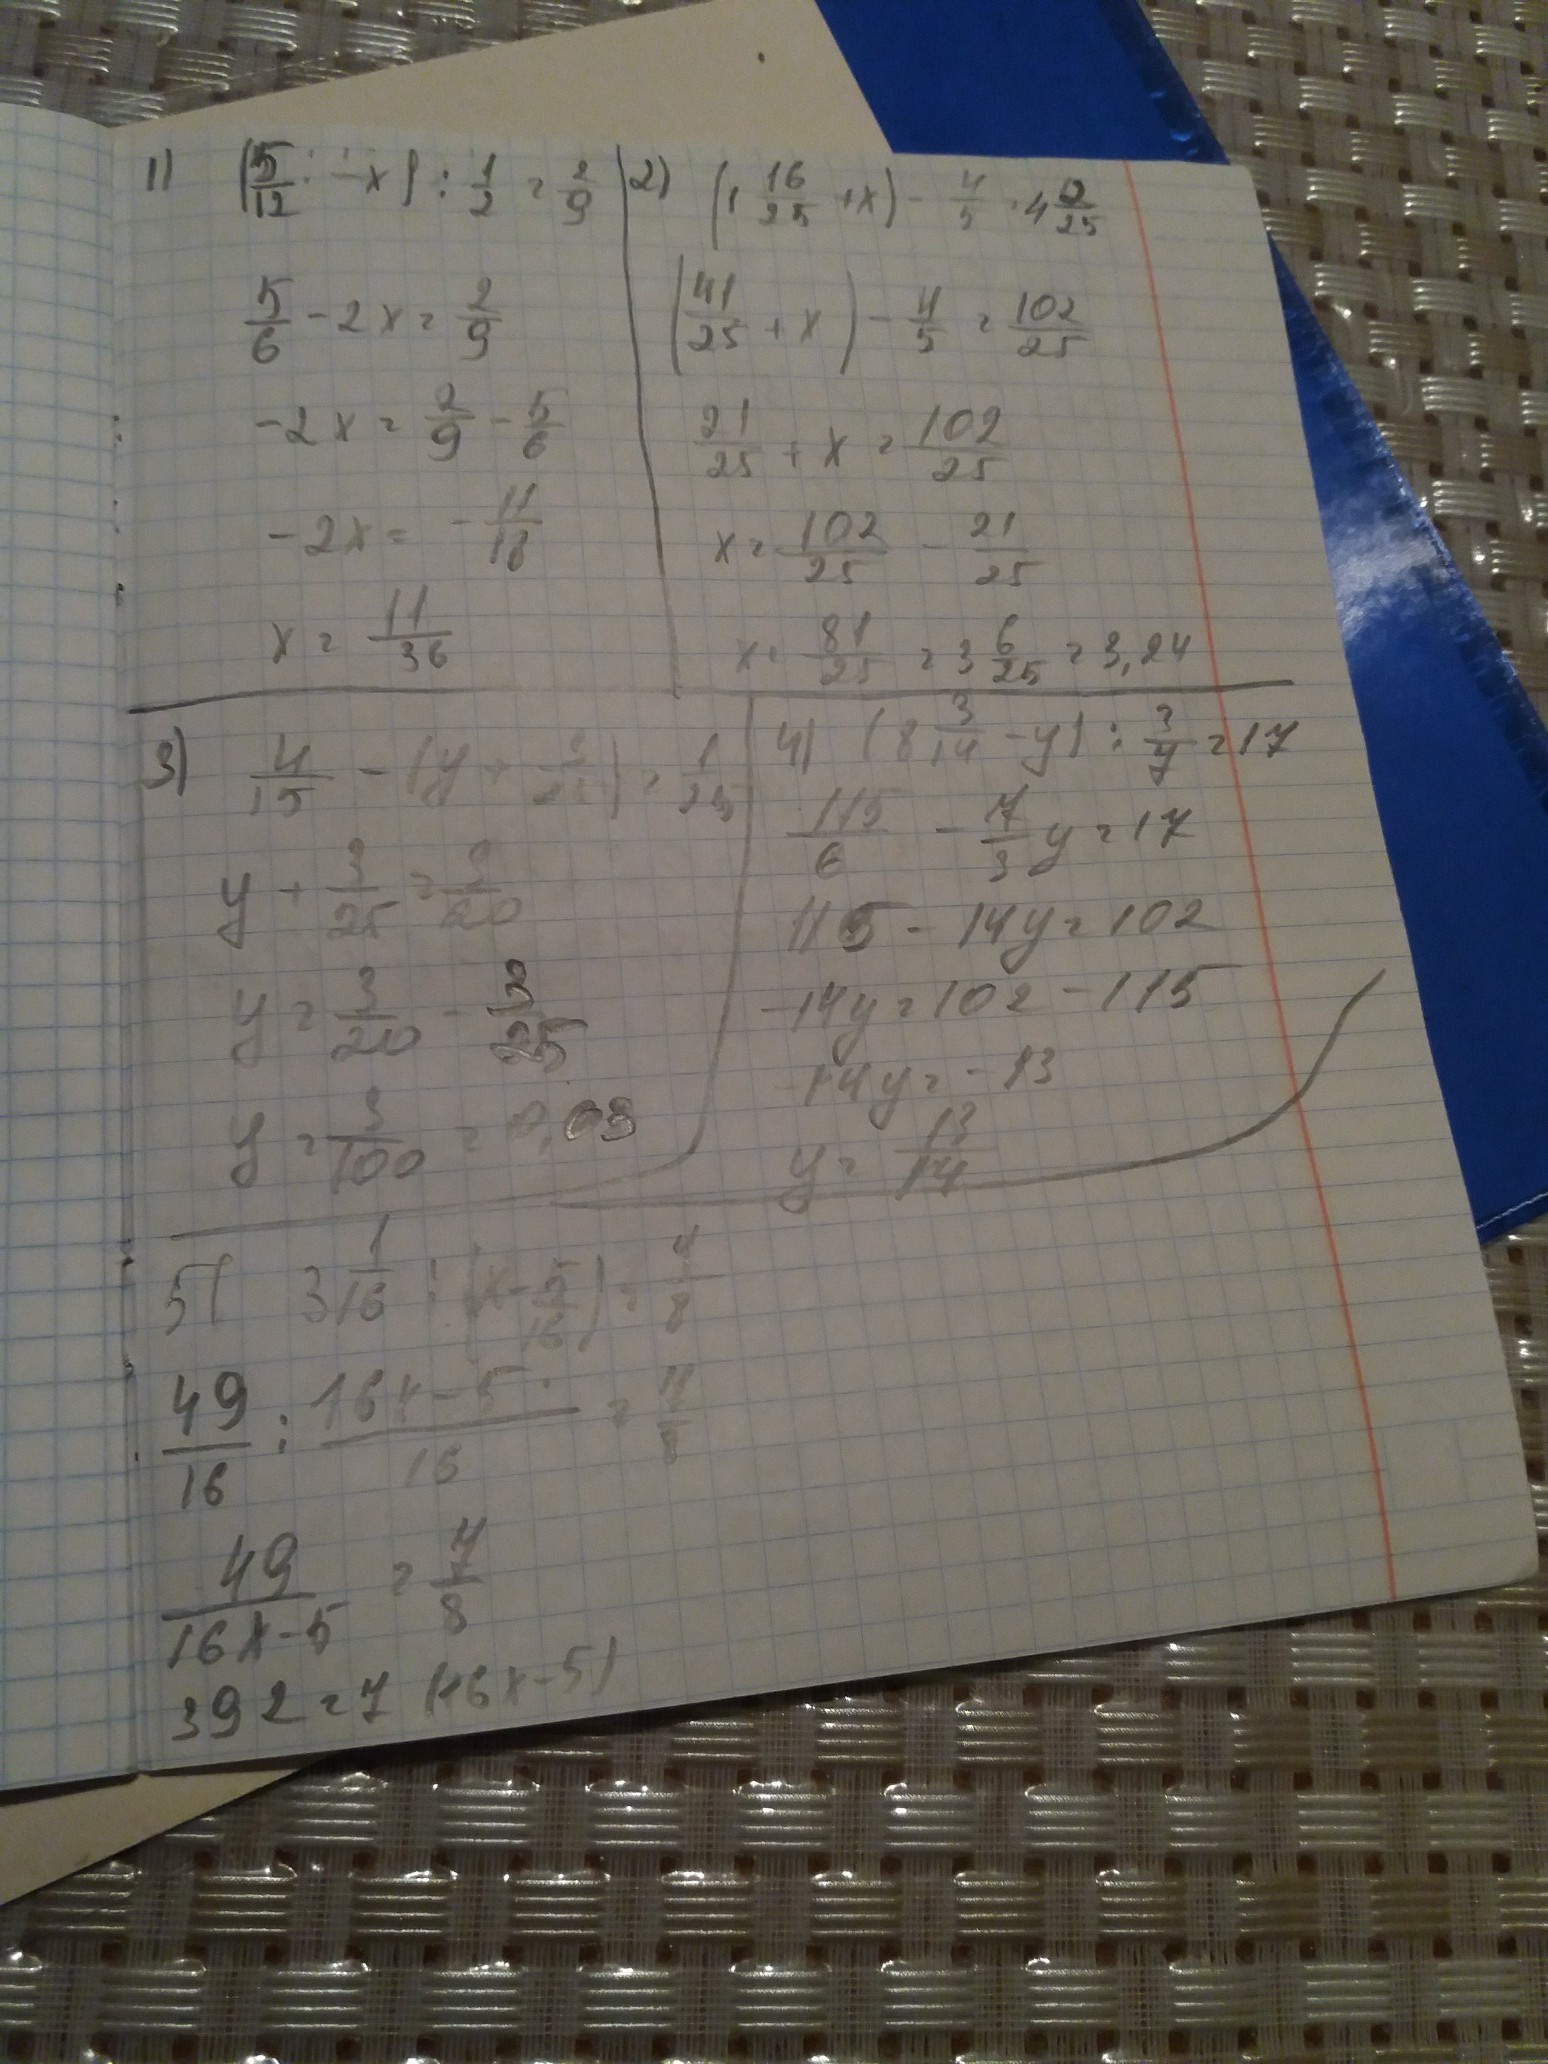 1) (5/12 - x) : 1/2 = 2/9
5/6 - 2x = 2/9
-2x = 2/9 - 5/6
-2x = -11/18
x = 11/36
2) (1 16/25 + x) - 4/5 = 4 2/25
(41/25 + x) - 4/5 = 102/25
21/25 + x = 102/25
x = 102/25 - 21/25
x = 81/25 = 3 6/25 = 3,24
3)
y + 3/25 = 3/20
y = 3/20 - 3/25
y = 3/100 = 0,03
4) (8 3/14 - y) : 3/7 = 17
115/6 - 7/3 y = 17
115 - 14y = 102
-14y = 102 - 115
-14y = -13
y = 13/14
5) 3 1/16 : (x - 5/16) = 7/8
49/16 : 16x-5/16 = 7/8
49/16x-5 = 7/8
392 = 7 (16x-5)